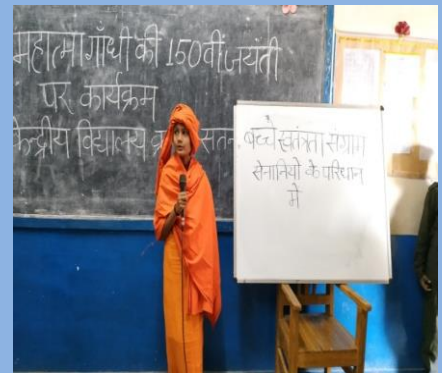 महात्मा गाँधी की 150वीं जयंती
पर कार्यक्रम
केन्द्रीय विद्यालय
बच्चे स्वतंत्रता संग्राम
सेनानियों के परिधान
में